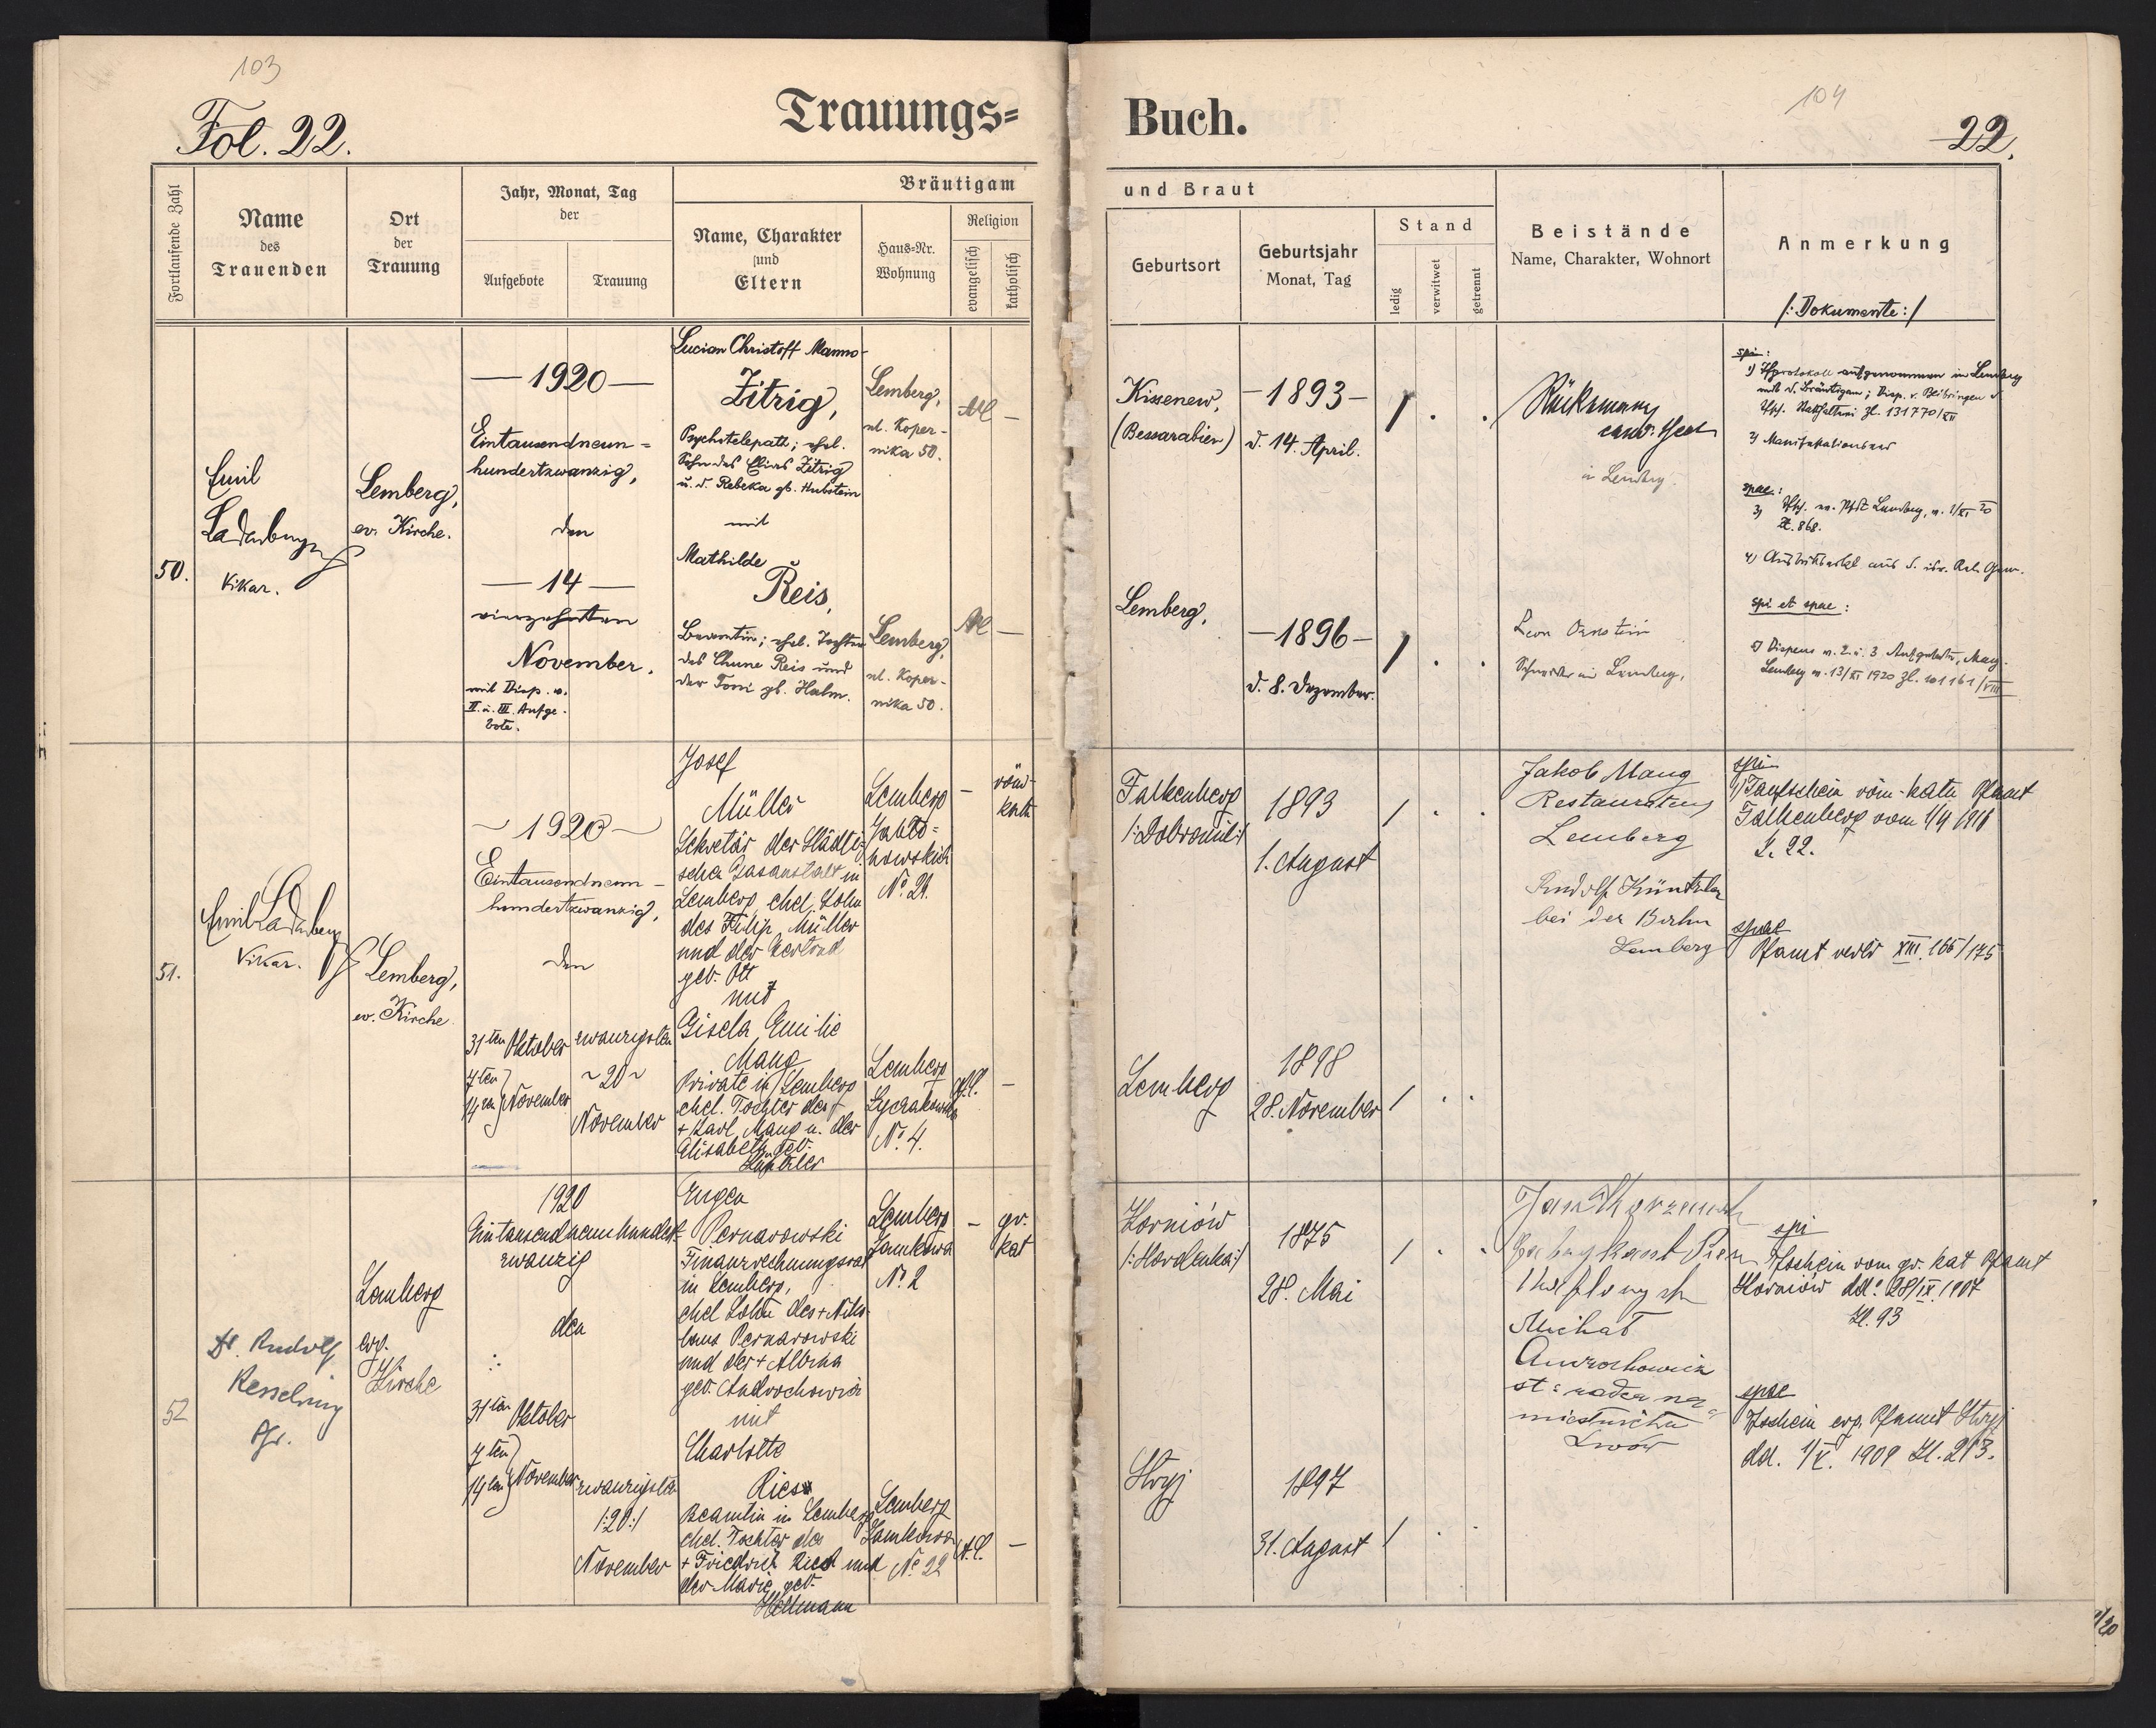 103
Fol. 22.
Trauungs-
Fortlaufende Zahl
Name
des
Trauenden
Ort
der
Trauung
Jahr, Monat, Tag
der
Aufgebote
Trauung
Bräutigam
Name, Charakter
und
Eltern
Haus-Nr.
Wohnung
Religion
evangelisch
katholisch
50.
Emil
Ladenberger
Vikar.
Lemberg,
ev. Kirche.
— 1920 —
Eintausendneun-
hundertzwanzig,
den
— 14 —
vierzehnten
November.
mit Disp. v.
II. u. III. Aufge-
bote.
Lucian Christoff Manno-
Zitrig,
Psychotelepath; ehel.
Sohn des Elias Zitrig
u. d. Rebeka gb. Hubstein
mit
Mathilde
Reis,
Beamtin; ehel. Tochter
des Chune Reis und
der Toni gb. Halm.
Lemberg,
ul. Koper-
nika 50.
Lemberg,
ul. Koper-
nika 50.
AC —
AC —
51.
Emil Ladenberger
Vikar.
Lemberg,
ev. Kirche
~ 1920 ~
Eintausendneun-
hundertzwanzig,
den
31ten Oktober
7ten
14ten November
zwanzigsten
~ 20 ~
November
Josef
Müller
Sekretär der Städti-
schen Gasanstalt in
Lemberg, ehel. Sohn
des Filip Müller
und der Gertrud
geb. Ott
mit
Gisela Emilie
Mang
Private in Lemberg
ehel. Tochter des
+ Karl Mang u. der
Elisabeth geb.
Küntzler
Lemberg
Jablo-
nowskich
No. 24.
Lemberg
Lyczakowska
No. 4.
— röm-
kath
A.C. —
52
Dr. Rudolf
Kesselring
Pfr.
Lemberg
evg.
Kirche
1920
Eintausendneunhundert-
zwanzig
den
31ten Oktober
7ten
14ten November
zwanzigsten
/:20:/
November
Eugen
Pernarowski
Finanzrechnungsrat
in Lemberg,
ehel Sohn des + Niko-
laus Pernarowski
und der + Albina
geb. Androchowicz
mit
Charlotte
Ries
Beamtin in Lemberg
ehel. Tochter des
+ Friedrich Ries und
der Marie geb.
Hellmann
Lemberg
Zamkowa
No. 2
Lemberg
Zamkowa
No. 22
— gr.
kat
A.C. —
Buch.
104
22.
und Braut
Geburtsort
Geburtsjahr
Monat, Tag
Stand
ledig
verwitwet
getrennt
Beistände
Name, Charakter, Wohnort
Anmerkung
/: Dokumente :/
Kissenew,
(Bessarabien)
— 1893 —
d. 14. April.
in Lemberg.
Lemberg,
— 1896 —
d. 8. Dezember.
Leon Ornstein
in Lemberg,
spi:
1) aufgenommen in Lemberg
mit d. Bräutigam; Disp. v. Beibringen d
Zl. 131770/XII
2)
spae:
3) Lemberg, v. 2/XI 20
Zl. 868.
4) aus d. isr. Rel. Gem.
spi et spae:
5) Dispens v. 2. u. 3. Aufgebote, Mag.
Lemberg v. 13/XI 1920 Zl. 101161/VIII
Falkenberg
/:Dobromil:/
1893
1. August
Jakob Mang
Restaurateur
Lemberg
Rudolf Küntzler
bei der Bahn
Lemberg
spi
1) Taufschein röm-kath Pfamt
Falkenberg vom 1/4 1918
Z. 22.
spae
Pfamt XIII. 166/175
Lemberg
1898
28. November
Korniów
/:Horodenka:/
1875
28. Mai
Jan
Michał
st: radca na-
miestnictwa
Lwów
spi
Tfschein vom gr. kat Pfamt
Korniów dd: 28/IX. 1907
Zl. 93
spae
Tfschein evg. Pfamt Stryj
dd. 1/V. 1909 Zl. 213.
Stryj
1897
31. August